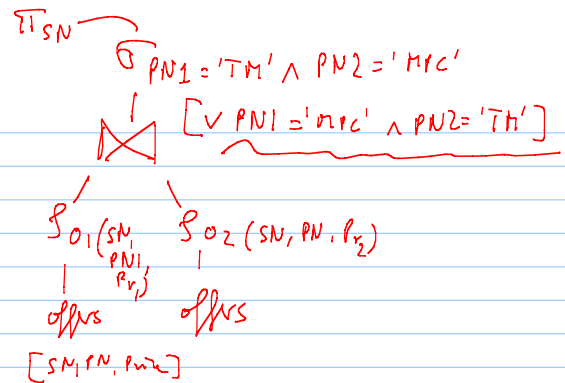 π SN
σ PN1 = 'TM' ∧ PN2 = 'MPC'
[∨ PN1 = 'MPC' ∧ PN2 = 'TM']
⋈
ρ O1 (SN, PN1, Pr1) ρ O2 (SN, PN, Pr2)
offers offers
[SN, PN, Price]